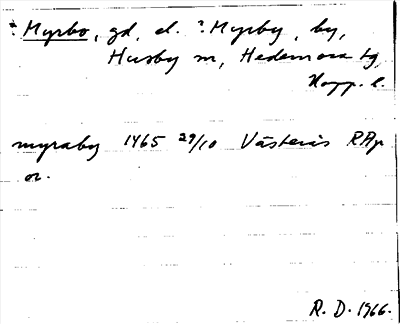 ? Myrbo, gd, el. ? Myrby, by,
Husby sn, Hedemora tg,
Kopp. l.
myraby 1465 29/10 Västerås RAp
or.
R. D. 1966.